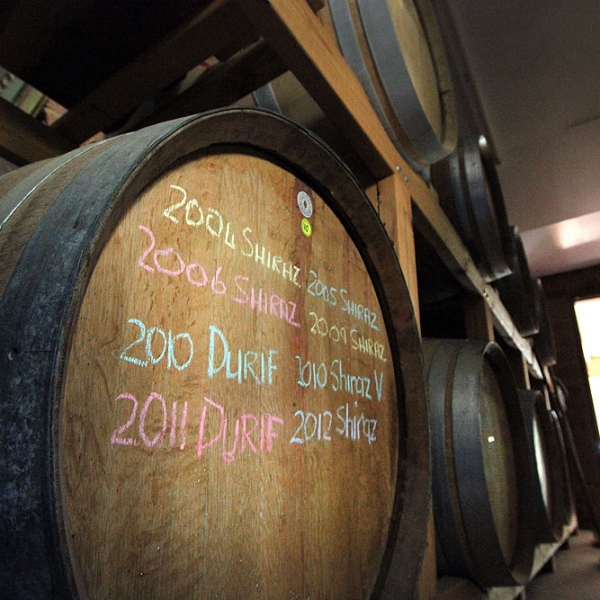 2004 SHIRAZ 2005 SHIRAZ
2006 SHIRAZ 2009 SHIRAZ
2010 DURIF 2010 Shiraz V
2011 DURIF 2012 Shiraz